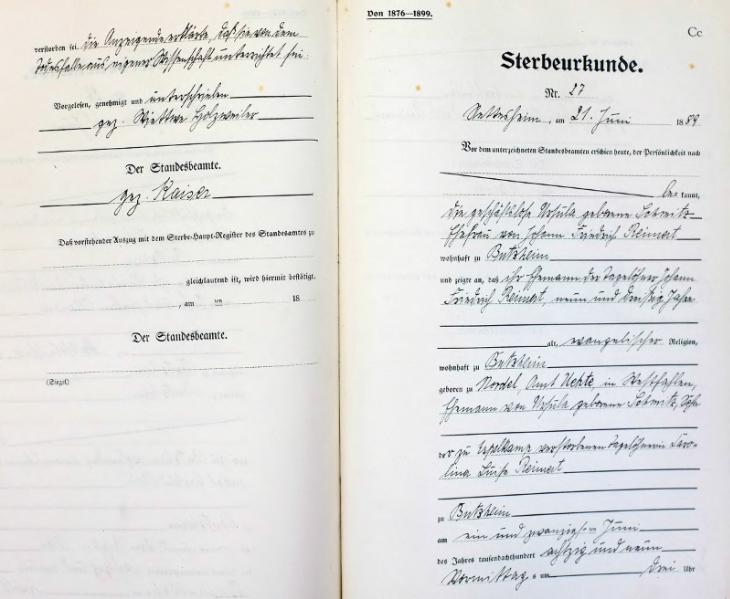 verstorben sei. Die Anzeigende erklärte, daß sie von dem
Todesfalle aus eigener Wissenschaft unterrichtet sei.
Vorgelesen, genehmigt und unterschrieben
gez. Wittwe Holzweiler
Der Standesbeamte.
gez. Kaiser
Daß vorstehender Auszug mit dem Sterbe-Haupt-Register des Standesamtes zu
gleichlautend ist, wird hiermit bestätigt.
, am ten 18
Der Standesbeamte.
(Siegel)
Von 1876—1899.
Cc
Sterbeurkunde.
Nr. 27
Nettesheim, am 21. Juni 1889
Vor dem unterzeichneten Standesbeamten erschien heute, der Persönlichkeit nach
be kannt,
die geschäftslose Ursula geborene Schmitz
Ehefrau von Johann Friedrich Reimert
wohnhaft zu Butzheim
und zeigte an, daß ihr Ehemann der Tagelöhner Johann
Friedrich Reimert, neun und dreißig Jahre
alt, evangelischer Religion,
wohnhaft zu Butzheim
geboren zu Nordel, Amt Uchte, in Westfahlen,
Ehemann von Ursula geborene Schmitz, Sohn
der zu Espelkamp verstorbenen Tagelöhnerin Caro-
lina Luise Reimert
zu Butzheim
am ein und zwanzigsten Juni
des Jahres tausend achthundert achtzig und neun
Vormittags um drei Uhr